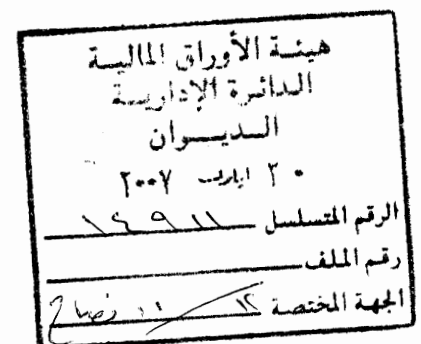 هيئة الأوراق المالية
الدائرة الإدارية
الديوان
٣٠ ايلول ٢٠٠٧
الرقم المتسلسل ١٤٩١١
رقم الملف
الجهة المختصة